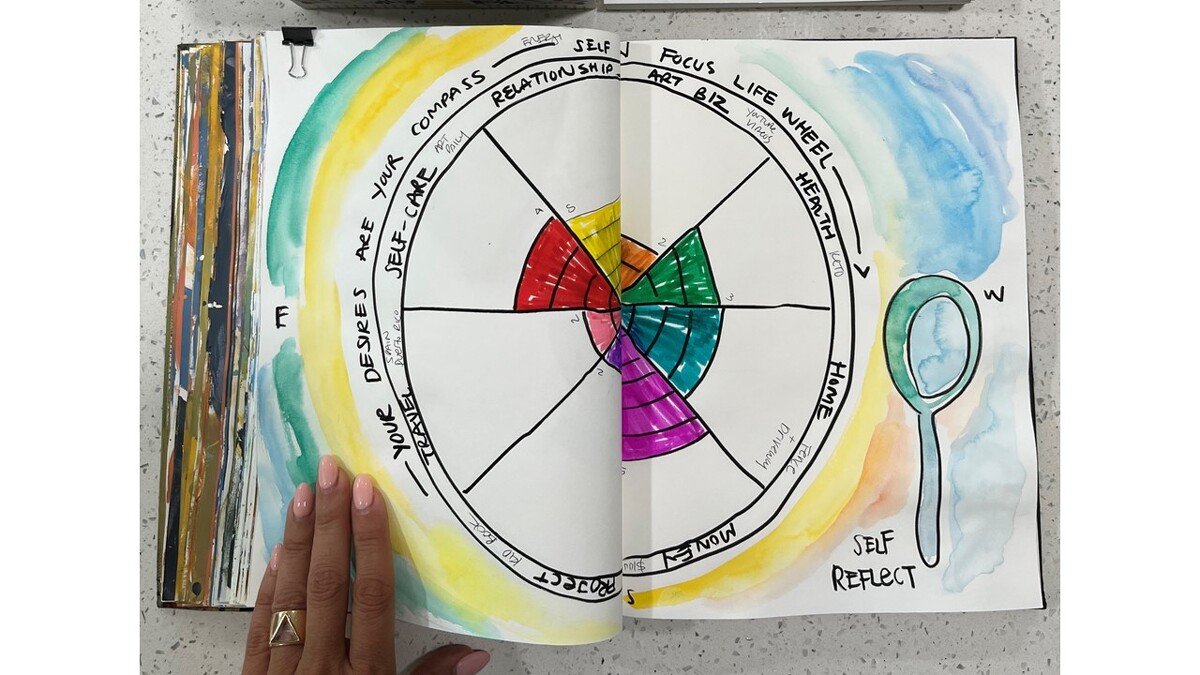 ENERGY
SELF
FOCUS LIFE WHEEL
YOUR DESIRES ARE YOUR COMPASS
RELATIONSHIP
ART BIZ
YOUTUBE
VIDEOS
HEALTH
KETO
HOME
FENCE
+
Driveway
MONEY
PROJECT
KID BOOK
TRAVEL
SPAIN
PUERTO RICO
SELF-CARE
ART
DAILY
4
5
2
3
5
2
2
E
W
S
SELF
REFLECT